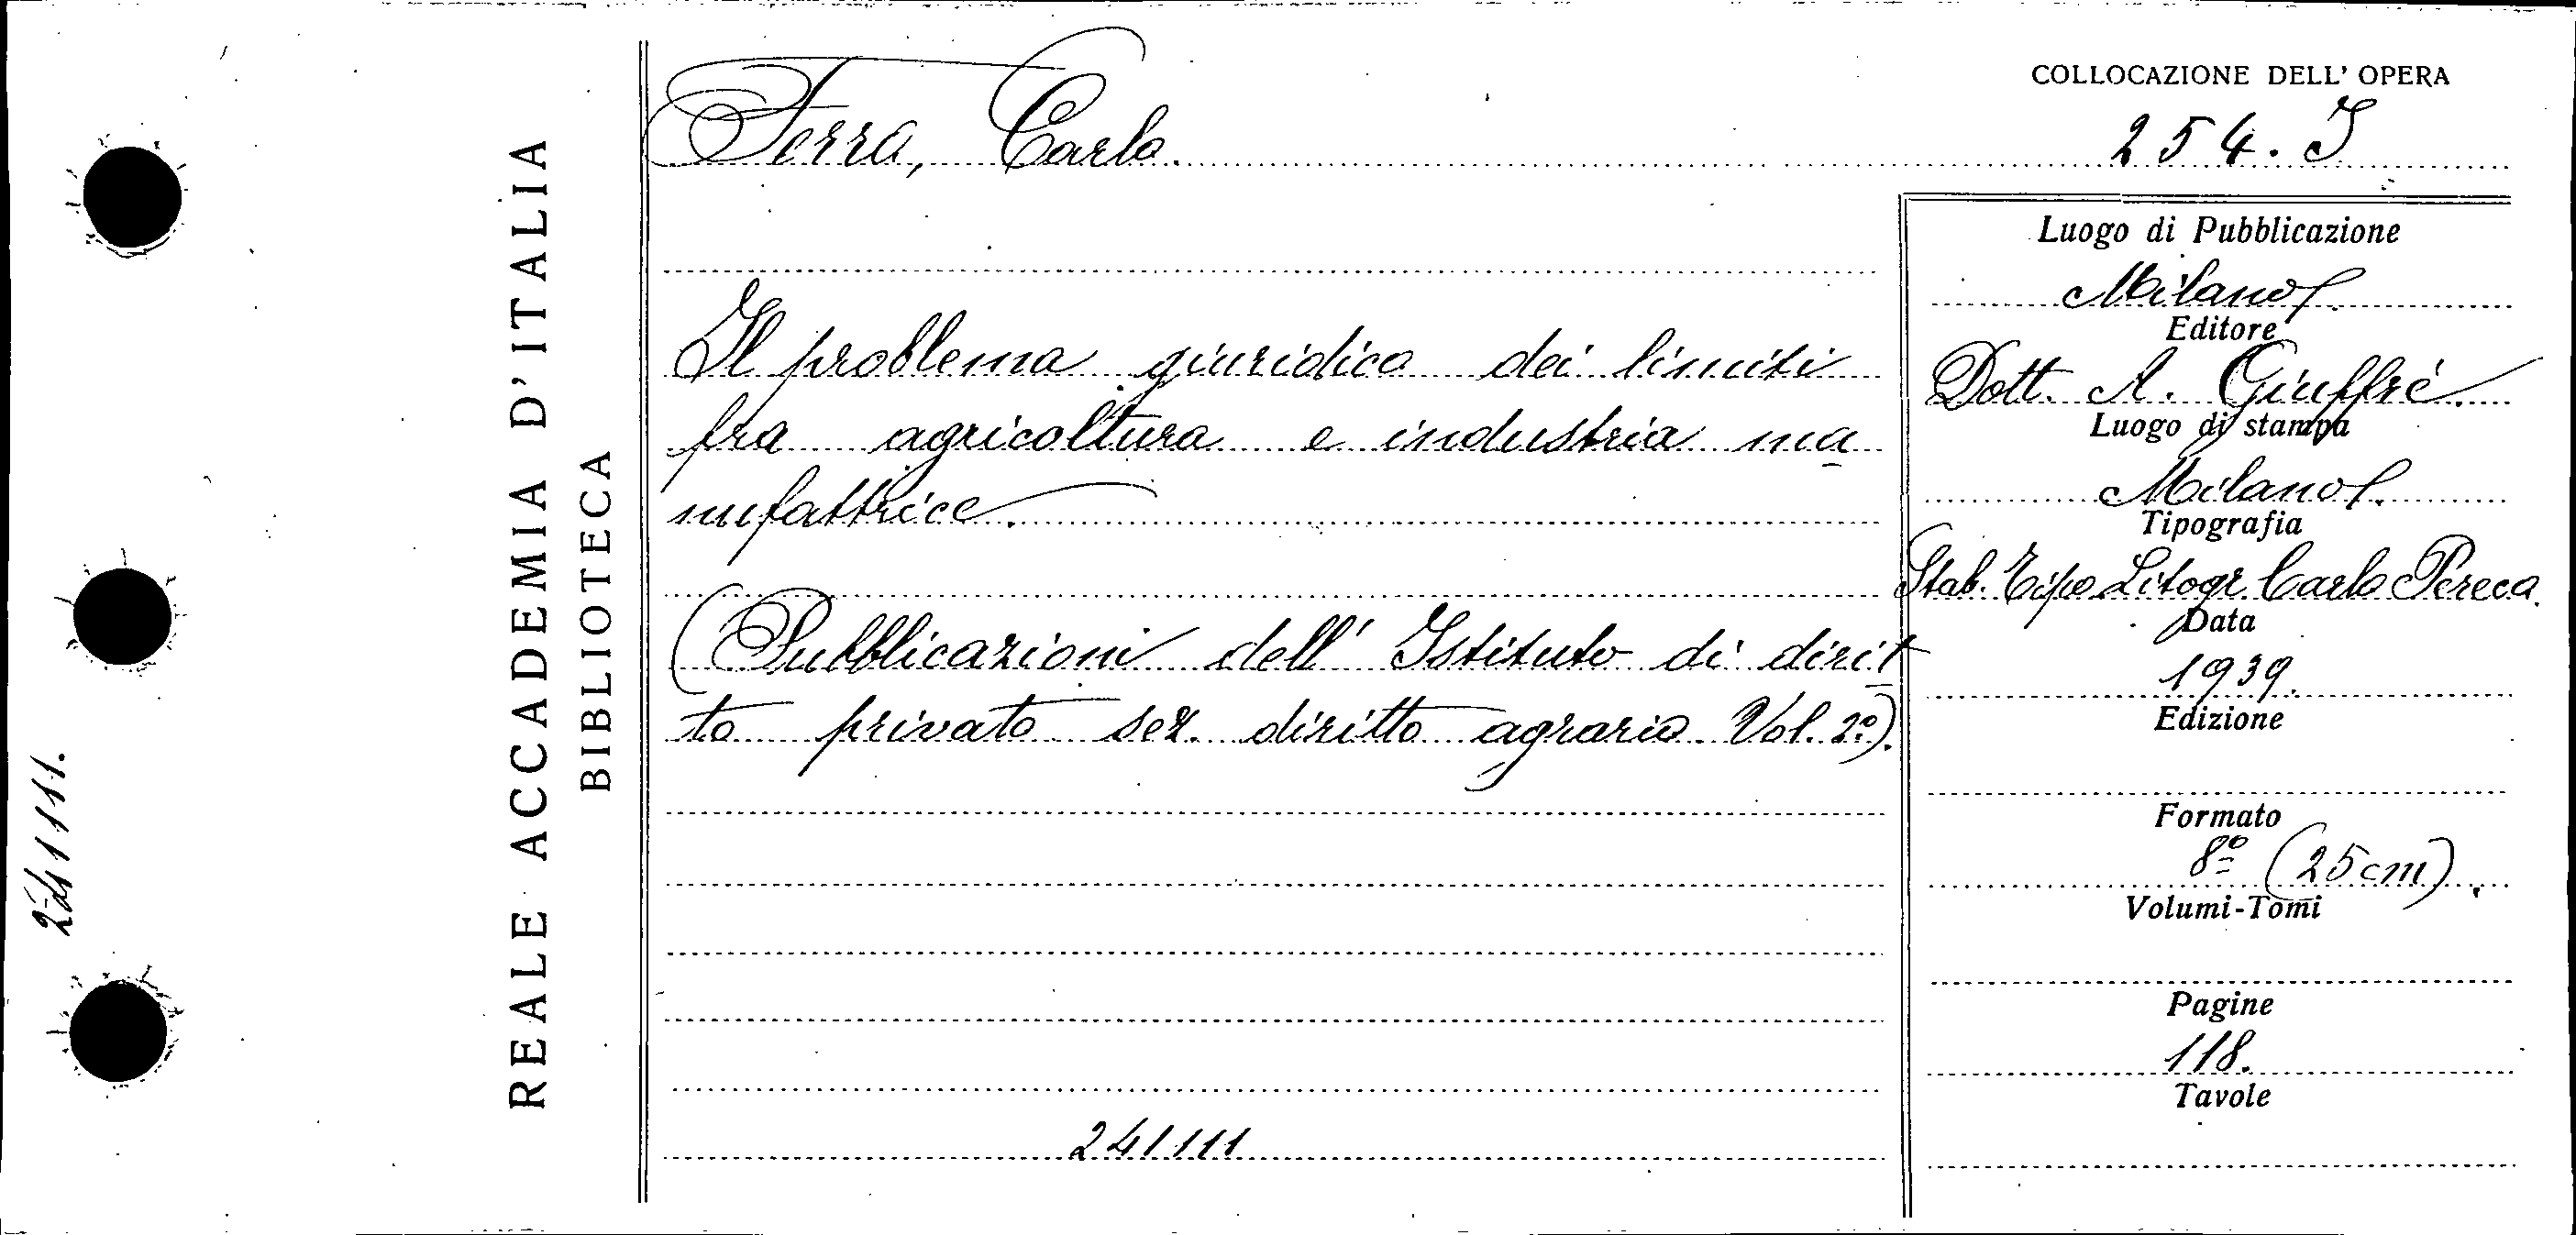 COLLOCAZIONE DELL' OPERA
Ferra, Carlo.
254. I
REALE ACCADEMIA D'ITALIA
BIBLIOTECA
241111.
Il problema giuridico dei limiti
fra agricoltura e industria ma
nufattrice.
(Pubblicazioni dell' Istituto di dirit
to privato sez. diritto agrario Vol. 2º).
241111
Luogo di Pubblicazione
Milano.
Editore
Dott. A. Giuffré.
Luogo di stampa
Milano.
Tipografia
Stab. Tipo Litogr. Carlo Pereca.
Data
1939.
Edizione
Formato
8º (25cm).
Volumi-Tomi
Pagine
118.
Tavole